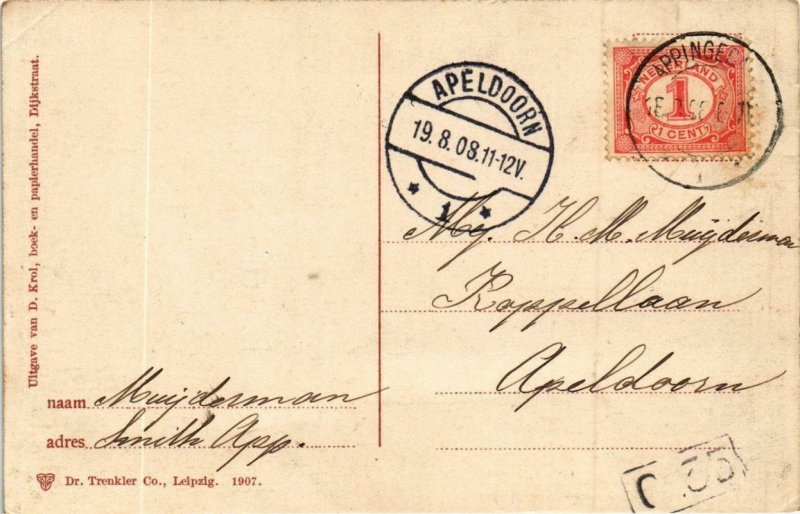 Uitgave van D. Krol, boek- en papierhandel, Dijkstraat.
APELDOORN
19.8.08.11-12V.
1
APPINGED
NEDERLAND
1
1 CENT
Mej. H. M. Muijderman
Koppellaan
Apeldoorn
naam Muijderman
adres Smith App.
Dr. Trenkler Co., Leipzig. 1907.